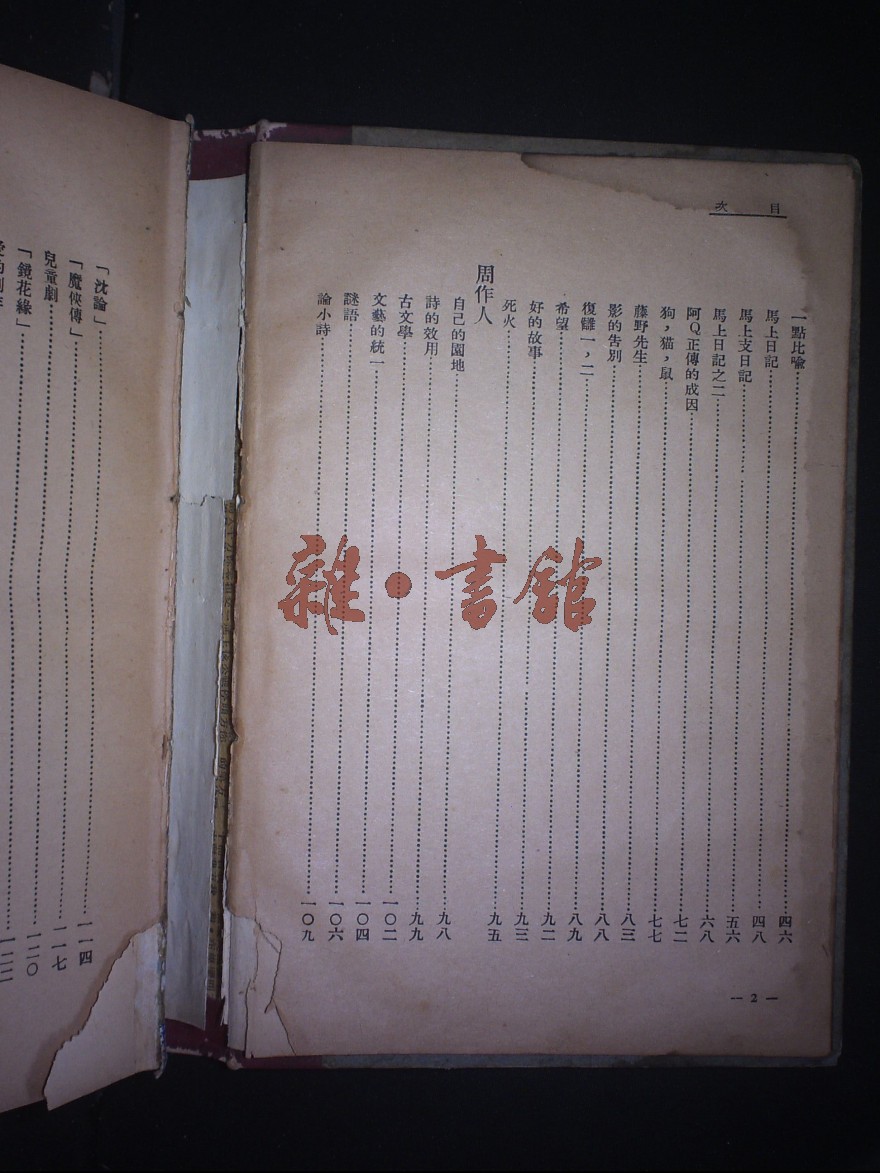 目次
一點比喻⋯⋯四六
馬上日記⋯⋯四八
馬上支日記⋯⋯五六
馬上日記之二⋯⋯六八
阿Q正傳的成因⋯⋯七二
狗，猫，鼠⋯⋯七七
藤野先生⋯⋯八三
影的告別⋯⋯八八
復讎一，二⋯⋯八九
希望⋯⋯九二
好的故事⋯⋯九三
死火⋯⋯九五
周作人
自己的園地⋯⋯九八
詩的效用⋯⋯九九
古文學⋯⋯一〇二
文藝的統一⋯⋯一〇四
謎語⋯⋯一〇六
論小詩⋯⋯一〇九
— 2 —
「沈論」⋯⋯一一四
「魔俠傳」⋯⋯一一七
兒童劇⋯⋯一二〇
「鏡花緣」⋯⋯一二二
雜·書館